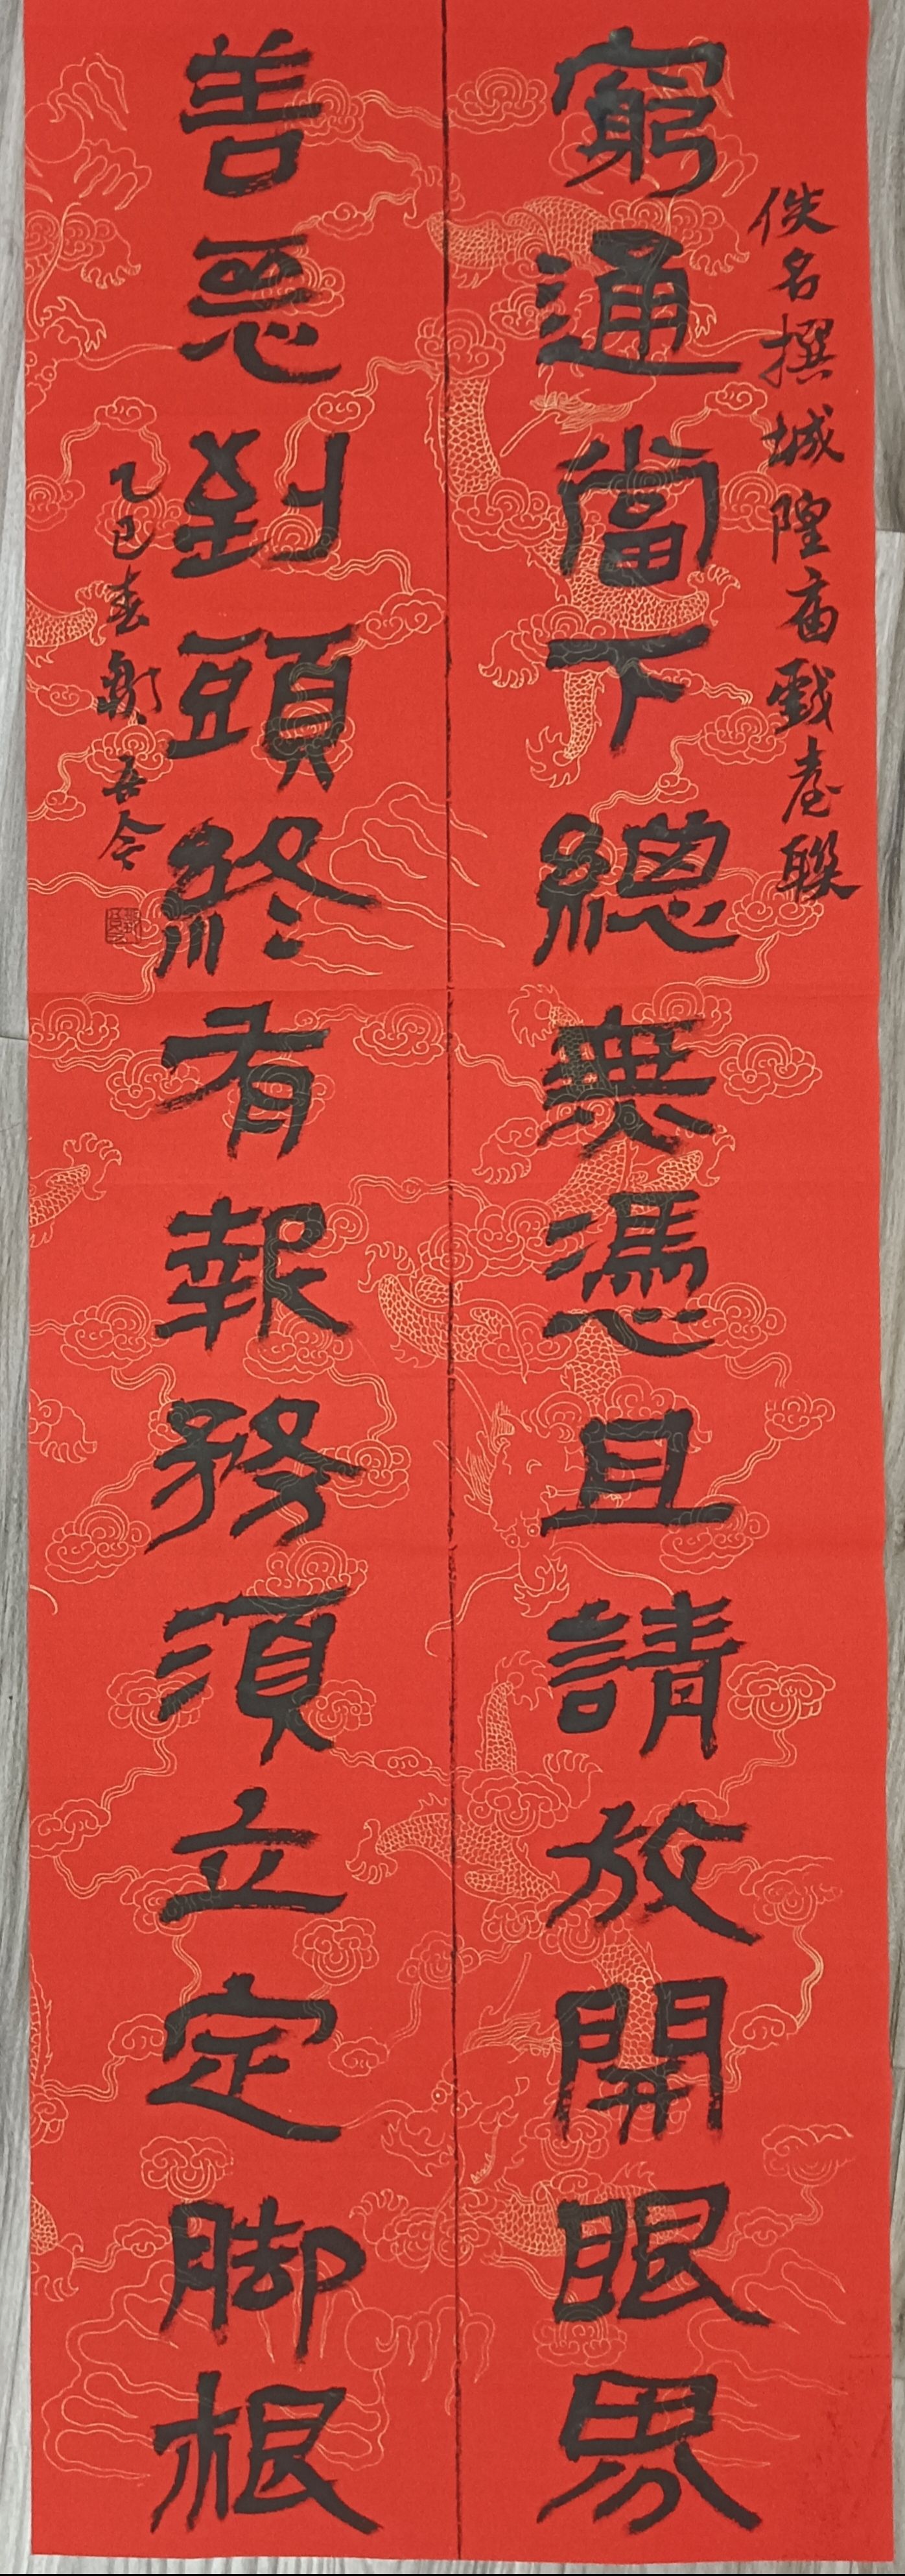 佚名撰城隍庙戲臺聯
窮通當下總無憑且請放開眼界
善惡到頭終有報務須立定脚根
乙巳春鄭吾令